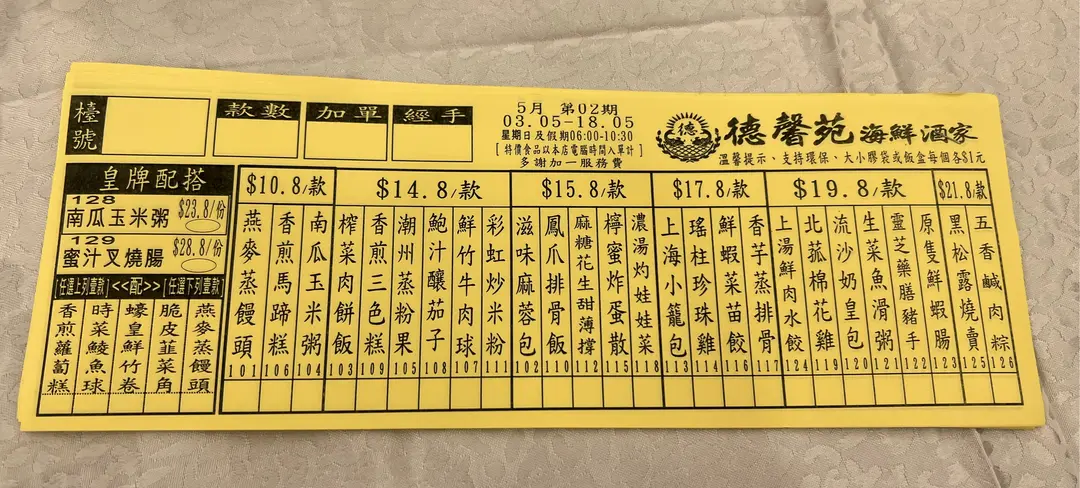 檯號
款數
加單
經手
5月 第02期
03.05-18.05
星期日及假期06:00-10:30
[特價食品以本店電腦時間入單計]
多謝加一服務費
德
德馨苑海鮮酒家
溫馨提示、支持環保、大小膠袋或飯盒每個各$1元
皇牌配搭
128
南瓜玉米粥 $23.8/份
129
蜜汁叉燒腸 $28.8/份
[任選上列壹款]<<配>>[任選下列壹款]
香煎蘿蔔糕
時菜鯪魚球
蠔皇鮮竹卷
脆皮韮菜角
燕麥蒸饅頭
$10.8/款
燕麥蒸饅頭 101
香煎馬蹄糕 106
南瓜玉米粥 104
$14.8/款
榨菜肉餅飯 103
香煎三色糕 109
潮州蒸粉果 105
鮑汁釀茄子 108
鮮竹牛肉球 107
彩虹炒米粉 111
$15.8/款
滋味麻蓉包 102
鳳爪排骨飯 110
麻糖花生甜薄撐 112
檸蜜炸蛋散 115
濃湯灼娃娃菜 118
$17.8/款
上海小籠包 113
瑤柱珍珠雞 114
鮮蝦菜苗餃 116
香芋蒸排骨 117
$19.8/款
上湯鮮肉水餃 124
北菰棉花雞 119
流沙奶皇包 120
生菜魚滑粥 121
靈芝藥膳豬手 122
原隻鮮蝦腸 123
$21.8/款
黑松露燒賣 125
五香鹹肉粽 126